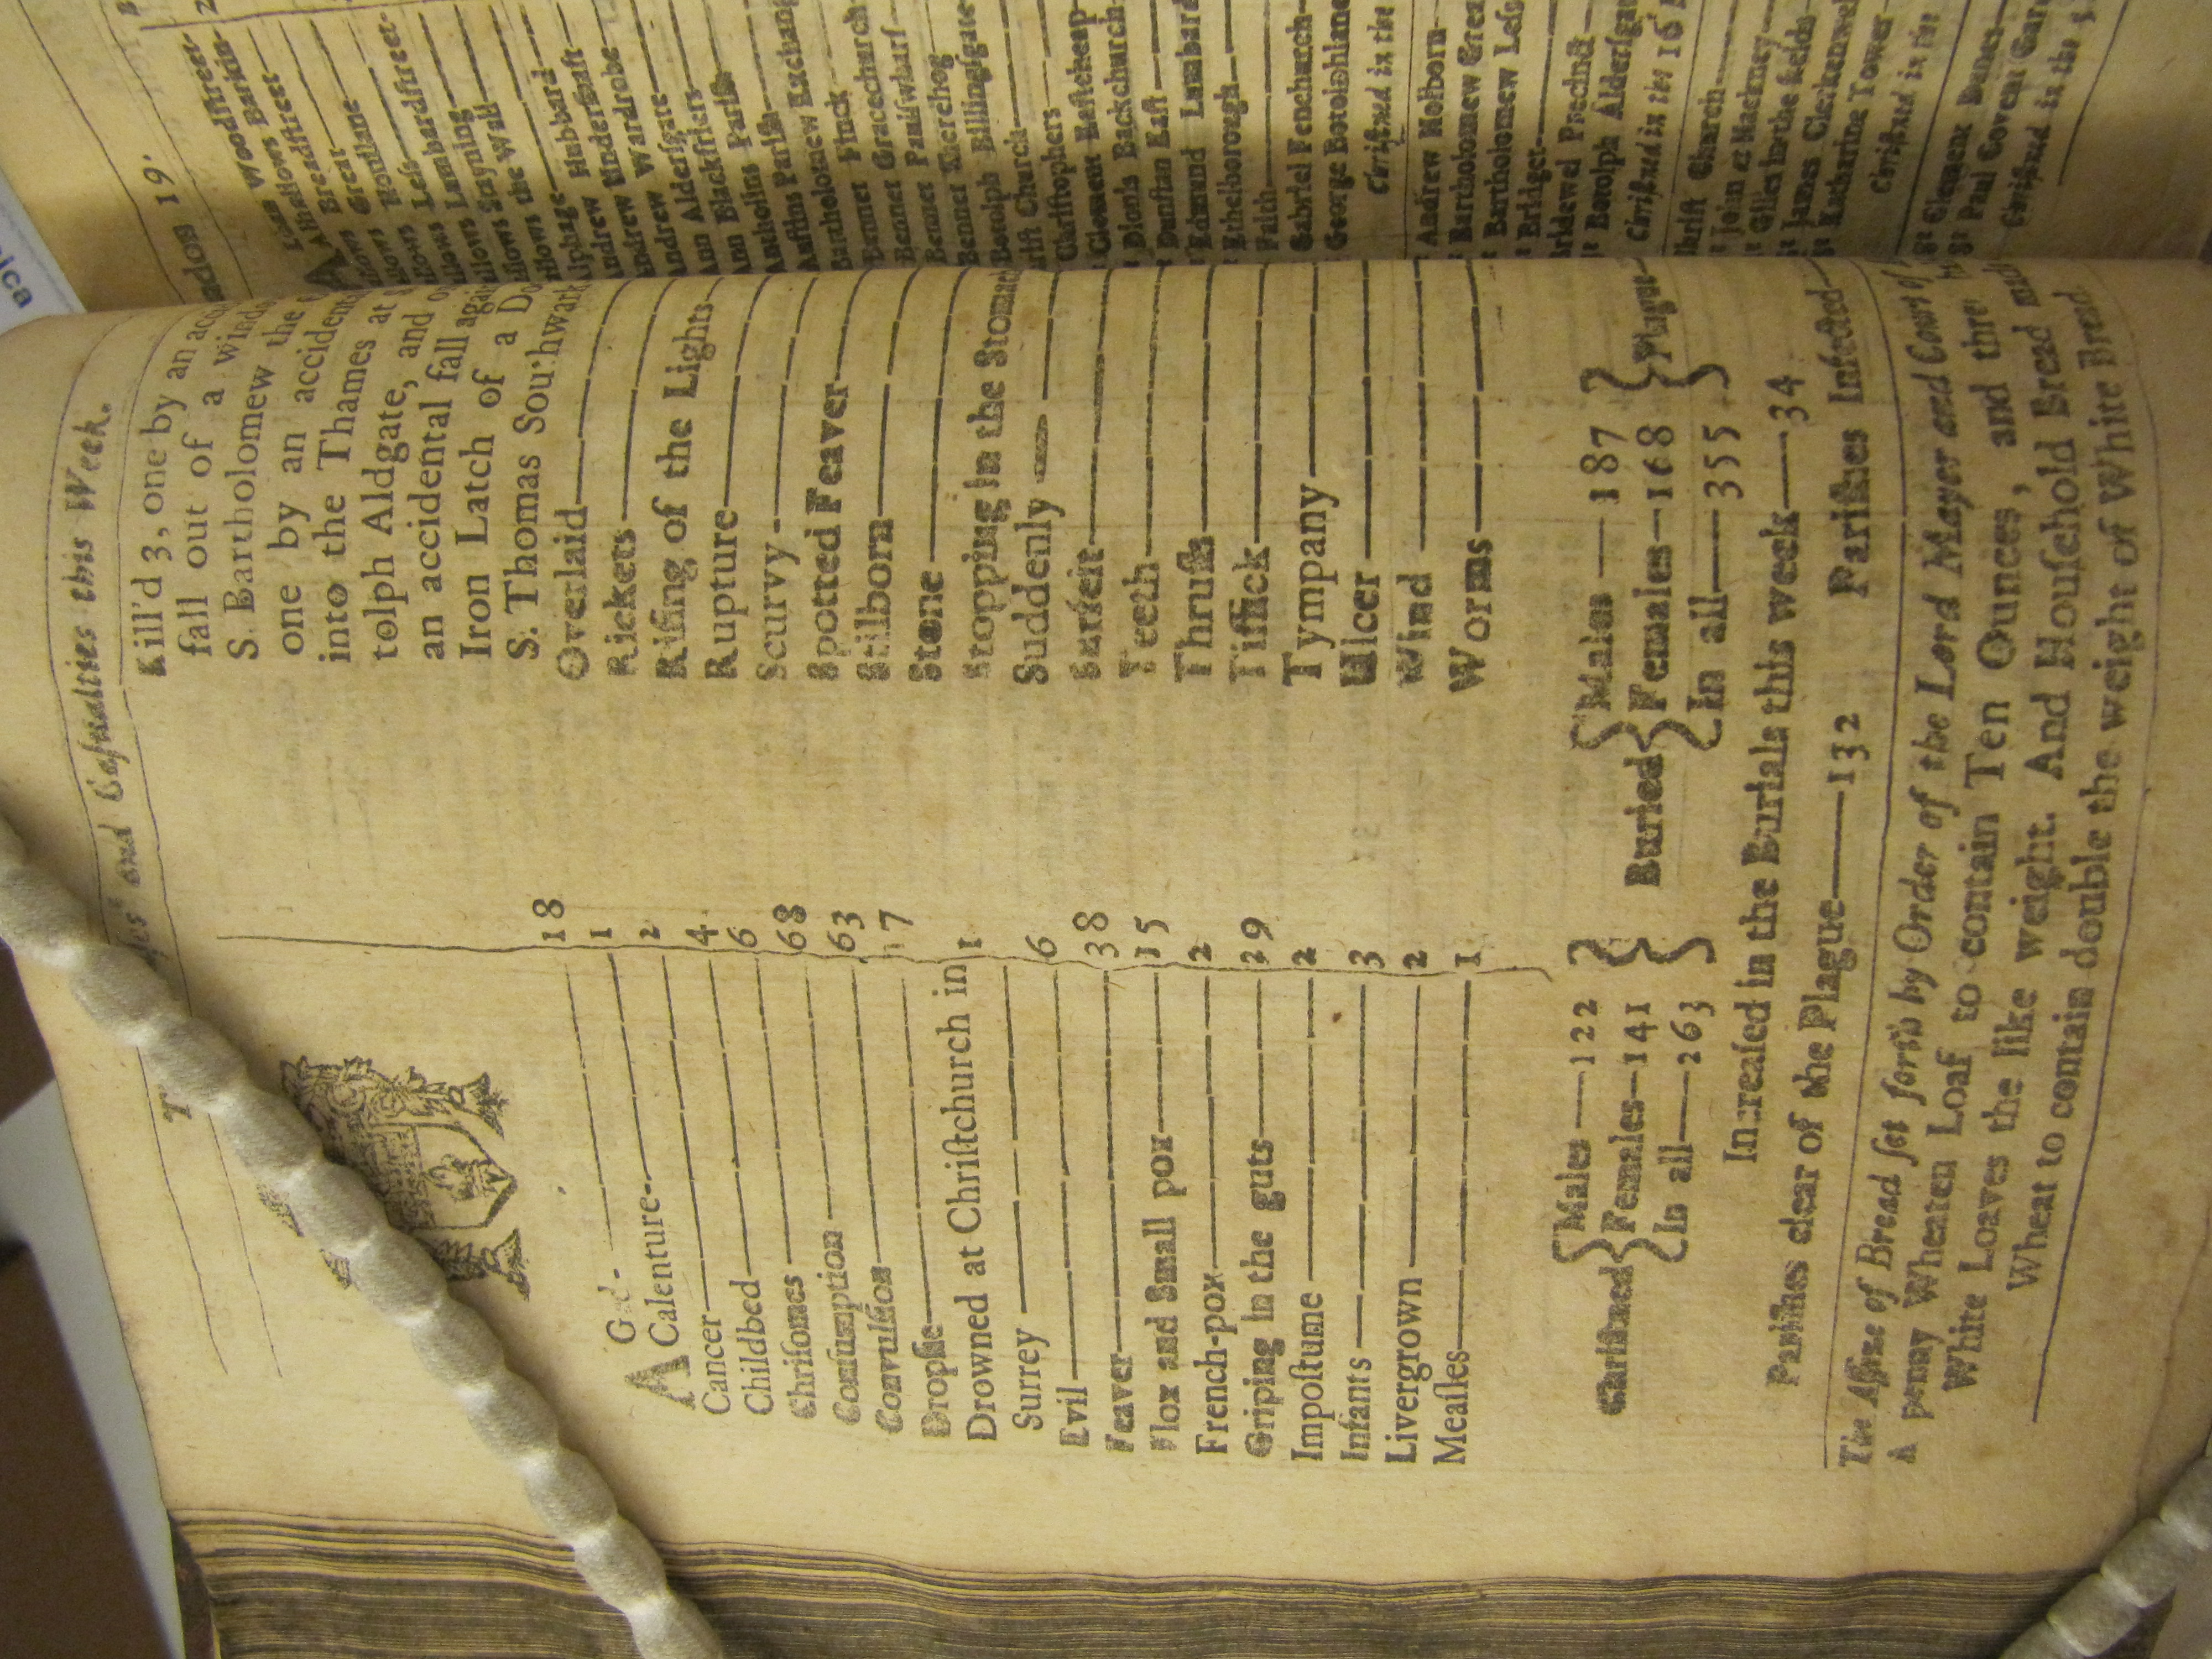 and Casualties this Week.
Aged 18
Calenture 1
Cancer 2
Childbed 4
Chrisomes 6
Consumption 68
Convulsion 63
Dropsie 17
Drowned at Christchurch in
Surrey 1
Evil 6
Feaver 38
Flox and Small pox 15
French-pox 2
Griping in the guts 29
Impostume 2
Infants 3
Livergrown 2
Measles 1
Kill'd 3, one by an
fall out of a
S. Bartholomew the
one by an accident
into the Thames at
tolph Aldgate, and
an accidental fall
Iron Latch of a
S. Thomas Southwark
Overlaid
Rickets
Rising of the Lights
Rupture
Scurvy
Spotted Feaver
Stilborn
Stone
Stopping in the
Suddenly
Surfeit
Teeth
Thrush
Tissick
Tympany
Ulcer
Wind
Worms
Christned { Males — 122 Females — 141 In all — 263 }
Buried { Males — 187 Females — 168 In all — 355 } Plague
Increased in the Burials this week — 34
Parishes clear of the Plague — 132 Parishes Infected
The Assize of Bread set forth by Order of the Lord Mayor and Court of
A penny Wheaten Loaf to contain Ten Ounces, and
White Loaves the like weight. And Houshold Bread
Wheat to contain double the weight of White Bread
19.
Breadstreet
Great
Honilane
Less
Lumbardstreet
Stayning
the Wall
Alphage
Andrew Hubbard
Andrew Undershaft
Andrew Wardrobe
Ann Aldersgate
Ann Blackfriers
Antholins Parish
Austins Parish
Bartholomew Exchange
Bennet Finck
Bennet Gracechurch
Bennet Paulswharf
Bennet Sherehog
Botolph Billingsgate
Christ Church
Christophers
Clement Eastcheap
Dionis Backchurch
Dunstan East
Edmund Lumbard
Ethelborough
Faith
Gabriel Fenchurch
George Botolphlane
Christned in the
Andrew Holborn
Bartholomew
Bartholomew Less
Bridget
Bridewel Precinct
Botolph
Christned in the 16
Christ Church
John at Hackney
Giles in the fields
James Clerkenwel
Katharine Tower
Christned in the
Clement Danes
Paul Covent
Christned in the 5